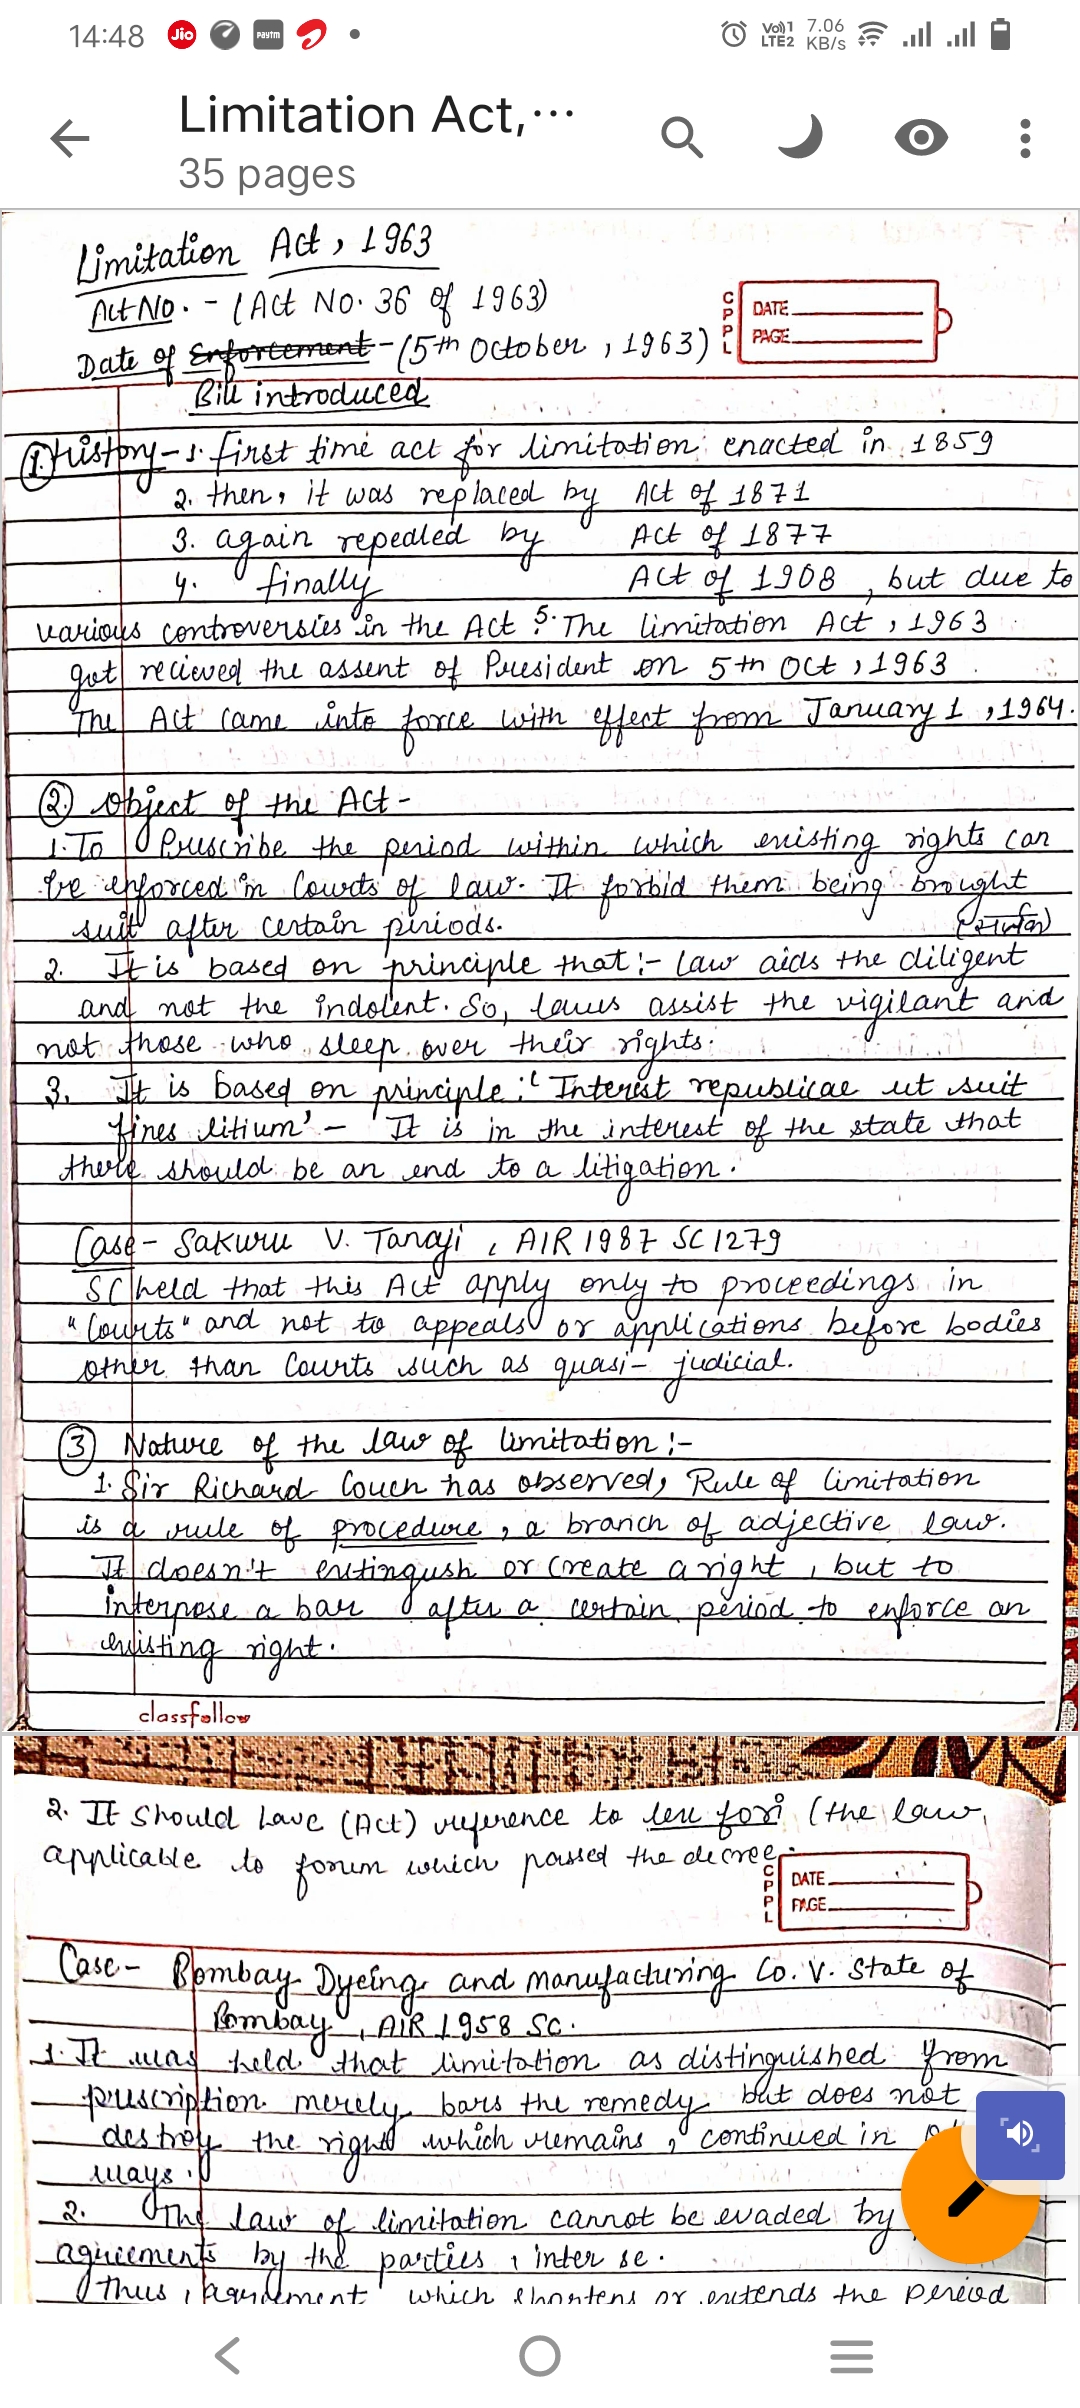 14:48 Jio Paytm Vo)) 1 LTE2 7.06 KB/s
Limitation Act,...
35 pages
Limitation Act, 1963
Act No. - (Act No. 36 of 1963)
CPPL DATE
PAGE
Date of Enforcement - (5th October, 1963)
Bill introduced
1. History - 1. First time act for limitation enacted in 1859
2. then, it was replaced by Act of 1871
3. again repealed by Act of 1877
4. finally Act of 1908, but due to
various controversies in the Act 5. The limitation Act, 1963
got recieved the assent of President on 5th Oct, 1963
The Act came into force with effect from January 1, 1964.
2. Object of the Act -
1. To Prescribe the period within which existing rights can
be enforced in Courts of law. It forbid them being brought
suit after certain periods.
2. It is based on principle that :- law aids the diligent
and not the indolent. So, laws assist the vigilant and
not those who sleep over their rights.
3. It is based on principle : 'Interest republicae ut suit
fines litium' - It is in the interest of the state that
there should be an end to a litigation.
Case - Sakuru V. Tanaji, AIR 1987 SC 1279
SC held that this Act apply only to proceedings in
"Courts" and not to appeals or applications before bodies
other than Courts such as quasi- judicial.
3 Nature of the law of limitation :-
1. Sir Richard Couch has observed, Rule of limitation
is a rule of procedure, a branch of adjective law.
It doesn't extingush or Create a right, but to
interpose a bar after a certain period to enforce an
existing right.
classfollow
2. It should have (Act) reference to lex fori (the law
applicable to forum which passed the decree.
CPPL DATE
PAGE
Case - Bombay Dyeing and Manufacturing Co. V. State of
Bombay, AIR 1958 SC.
1. It was held that limitation as distinguished from
prescription merely bars the remedy but does not
destroy the right which remains, continued in
ways.
2. The law of limitation cannot be evaded by
agreements by the parties, inter se.
Thus, agreement which shortens or extends the period